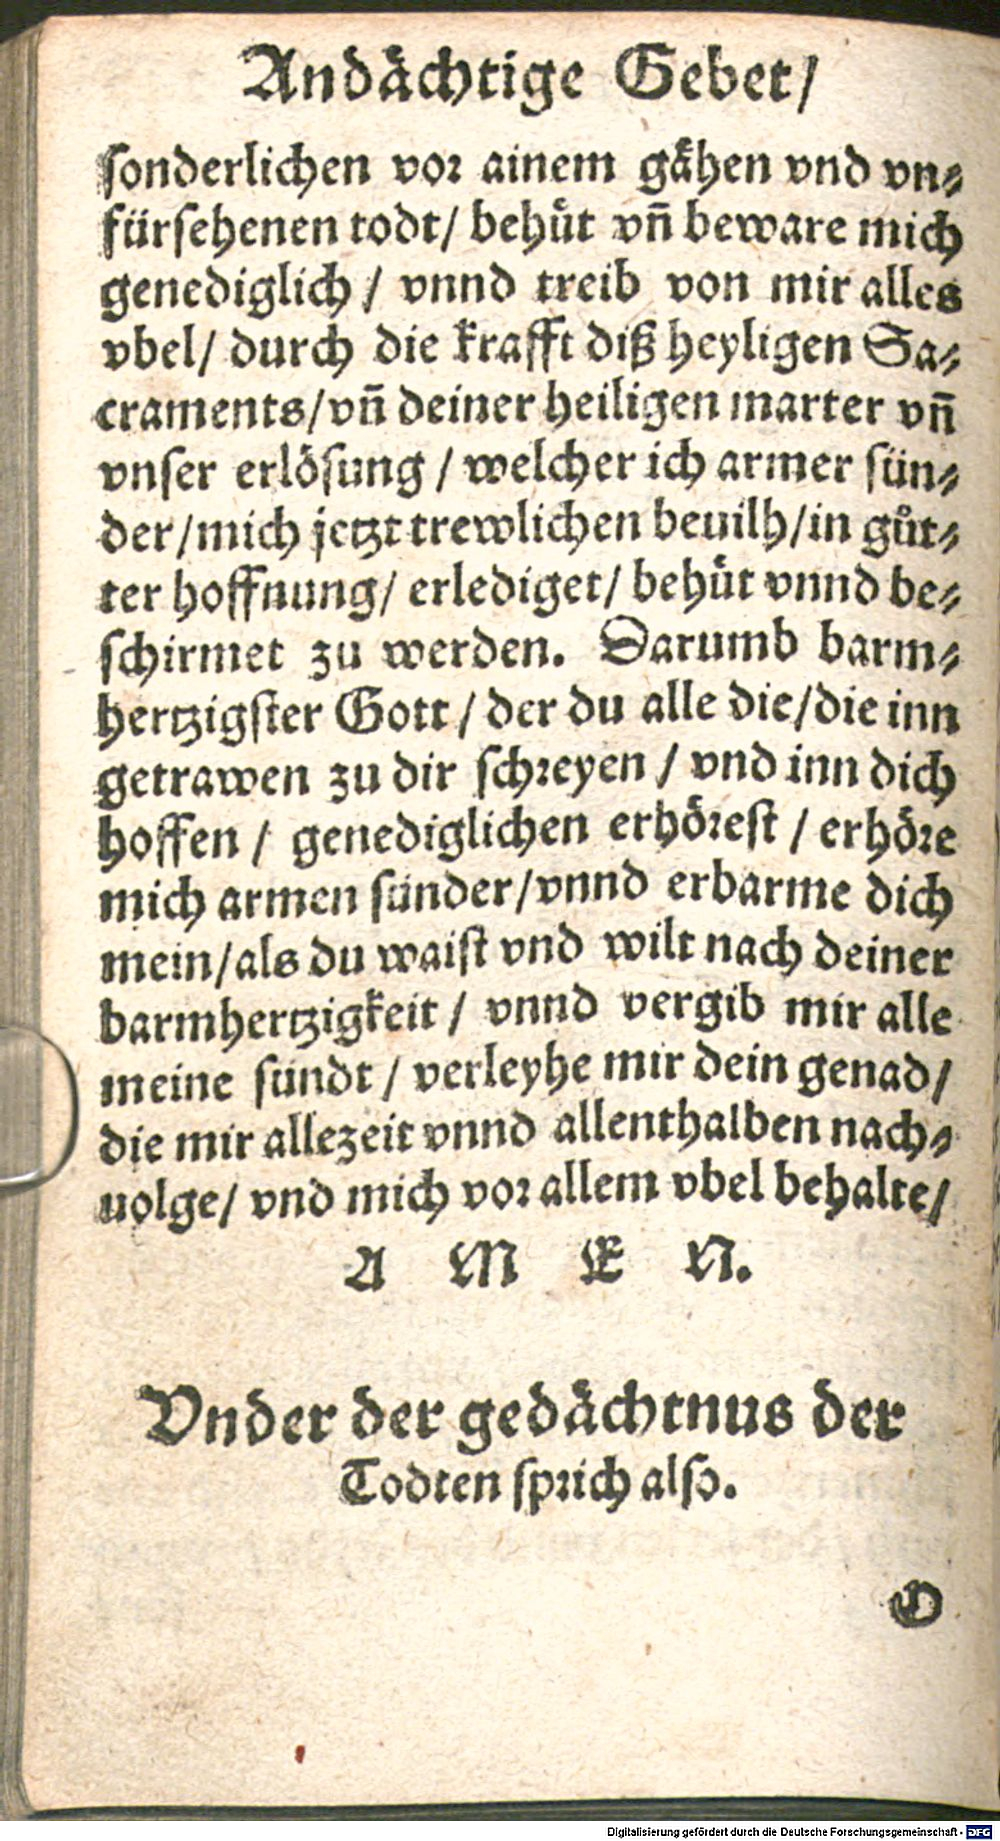 Andaͤchtige Gebet/
ſonderlichen vor ainem gaͤhen vnd vn⸗
fürſehenen todt/ behuͤt vñ beware mich
genediglich / vnnd treib von mir alles
vbel/ durch die krafft diß heyligen Sa⸗
craments/vñ deiner heiligen marter vñ
vnſer erloͤſung / welcher ich armer ſün⸗
der/mich jetzt trewlichen beuilh/in guͦt⸗
ter hoffnung/ erlediget/ behuͤt vnnd be⸗
ſchirmet zu werden. Darumb barm⸗
hertzigſter Gott / der du alle die/die inn
getrawen zu dir ſchreyen / vnd inn dich
hoffen / genediglichen erhoͤreſt / erhoͤre
mich armen ſünder/vnnd erbarme dich
mein/als du waiſt vnd wilt nach deiner
barmhertzigkeit / vnnd vergib mir alle
meine ſündt / verleyhe mir dein genad/
die mir allezeit vnnd allenthalben nach⸗
uolge/ vnd mich vor allem vbel behalte/
A M E N.
Vnder der gedaͤchtnus der
Todten ſprich alſo.
O
Digitalisierung gefördert durch die Deutsche Forschungsgemeinschaft - DFG